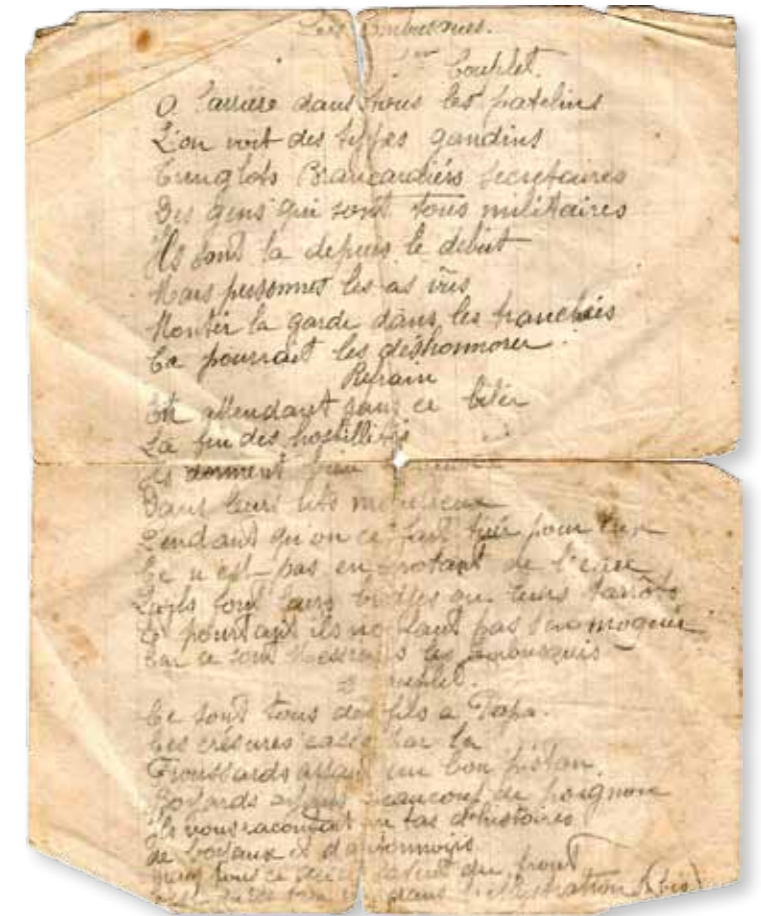 Les Embusqués.
1er Couplet.
O larriere dans tous les patelins
L'on voit des types gandins
Tringlots Brancardiérs Secretaires
Des gens qui sont tous militaires
Ils sont la depuis le debut
Mais personnes les as vus
Montér la garde dans les tranchées
Ca pourrait les déshonnorer.
Refrain
En attendant sans ce biler
La fin des hostilités
Ils dorment bien
Dans leurs lits moëlleux
Pendant qu'on ce fait tuér pour eux
Ce n'est pas en potant de l'eau
ils font leurs ou leurs
Et pourtant ils ne faut pas s'en moquér
Car ce sont Messieurs les
2 Couplet.
Ce sont tous des fils a Papa.
Les par la
Froussards ayant un bon piston
ayant beaucoup de poignon
Ils vous racontent un tas d'histoires
de boyaux et d
tous ce du front
dans l'illustration (bis)